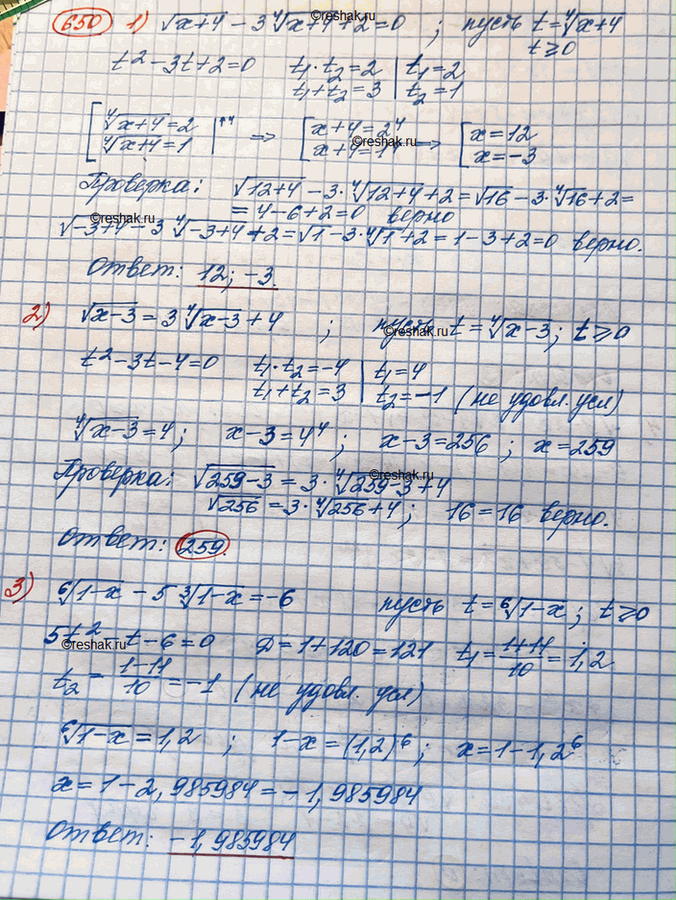 650 1) √x+4 − 3 ∜x+4 + 2 = 0 ; пусть t = ∜x+4
t ≥ 0
t² − 3t + 2 = 0 t₁ · t₂ = 2 | t₁ = 2
t₁ + t₂ = 3 | t₂ = 1
[ ∜x+4 = 2 |↑⁴ ⇒ [ x+4 = 2⁴ ⇒ [ x = 12
∜x+4 = 1 x+4 = 1⁴ x = −3
reshak.ru
Проверка: √12+4 − 3 · ∜12+4 + 2 = √16 − 3 · ∜16 + 2 =
= 4 − 6 + 2 = 0 верно
reshak.ru
√−3+4 − 3 ∜−3+4 + 2 = √1 − 3 · ∜1 + 2 = 1 − 3 + 2 = 0 верно.
Ответ: 12; −3.
2) √x−3 = 3 ∜x−3 + 4 ; пусть t = ∜x−3 ; t ≥ 0
reshak.ru
t² − 3t − 4 = 0 t₁ · t₂ = −4 | t₁ = 4
t₁ + t₂ = 3 | t₂ = −1 (не удовл. усл)
∜x−3 = 4 ; x−3 = 4⁴ ; x−3 = 256 ; x = 259
reshak.ru
Проверка: √259−3 = 3 · ∜259−3 + 4
√256 = 3 · ∜256 + 4 ; 16 = 16 верно.
Ответ: 259.
3) ⁶√1−x − 5 ³√1−x = −6 пусть t = ⁶√1−x ; t ≥ 0
5t² − t − 6 = 0 D = 1 + 120 = 121 t₁ = 1+11/10 = 1,2
reshak.ru
t₂ = 1−11/10 = −1 (не удовл. усл)
⁶√1−x = 1,2 ; 1−x = (1,2)⁶ ; x = 1 − 1,2⁶
x = 1 − 2,985984 = −1,985984
Ответ: −1,985984
reshak.ru